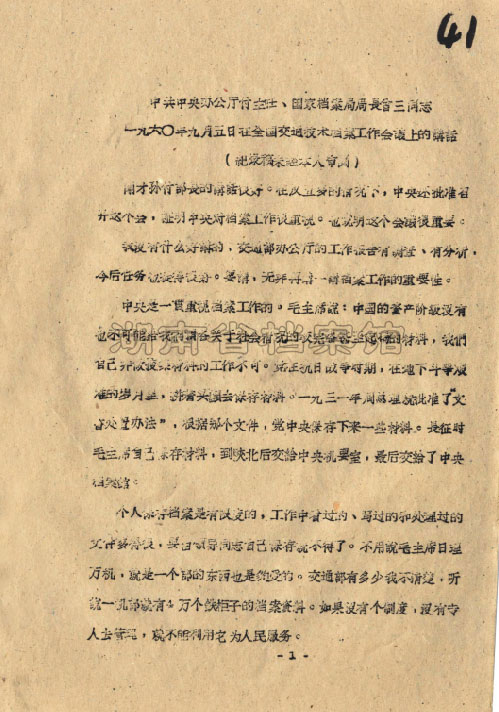 41
中共中央办公厅付主任、国家档案局局長曾三同志
一九六〇年九月五日在全国交通技术档案工作会議上的講話
(記录稿未經本人审閱)
刚才孙付部长的講話很好。在灾荒多的情况下,中央还批准召
开这个会,証明中央对档案工作很重視。也說明这个会議很重要。
我沒有什么好講的,交通部办公厅的工作报告有調查、有分析,
今后任务也提得很好。要講,无非再講一講档案工作的重要性。
中央是一貫重視档案工作的。毛主席說:中国的資产阶級沒有
也不可能給我們准备关于社会情况的較完备甚至起碼的材料,我們
自己非做搜集材料的工作不可。党在抗日战爭时期,在地下斗爭艰
难的岁月里,拚着头顱去保存材料。一九三一年周总理就批准了"文
書处置办法",根据那个文件,党中央保存下来一些材料。長征时
毛主席自己保存材料,到陝北后交給中央机要室,最后交給了中央
档案館。
个人保存档案是有限度的,工作中看过的、写过的和处理过的
文件多得很,要由領导同志自己保存就不得了。不用說毛主席日理
万机,就是一个部的东西也是够受的。交通部有多少我不清楚,听
說一机部就有 万个鉄柜子的档案資料。如果沒有个制度,沒有专
人去管理,就不能利用它为人民服务。
-1-
湖南省档案馆